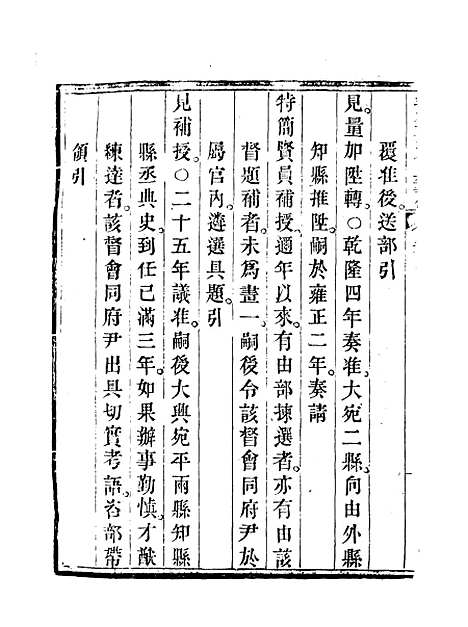 覆准後送部引
見量加陞轉○乾隆四年奏准大宛二縣向由外縣
知縣推陞嗣於雍正二年奏請
特簡賢員補授邇年以來有由部揀選者亦有由該
督題補者未爲畫一嗣後令該督會同府尹於
屬官內遴選具題引
見補授○二十五年議准嗣後大興宛平兩縣知縣
縣丞典史到任已滿三年如果辦事勤慎才猷
練達者該督會同府尹出具切實考語咨部帶
領引